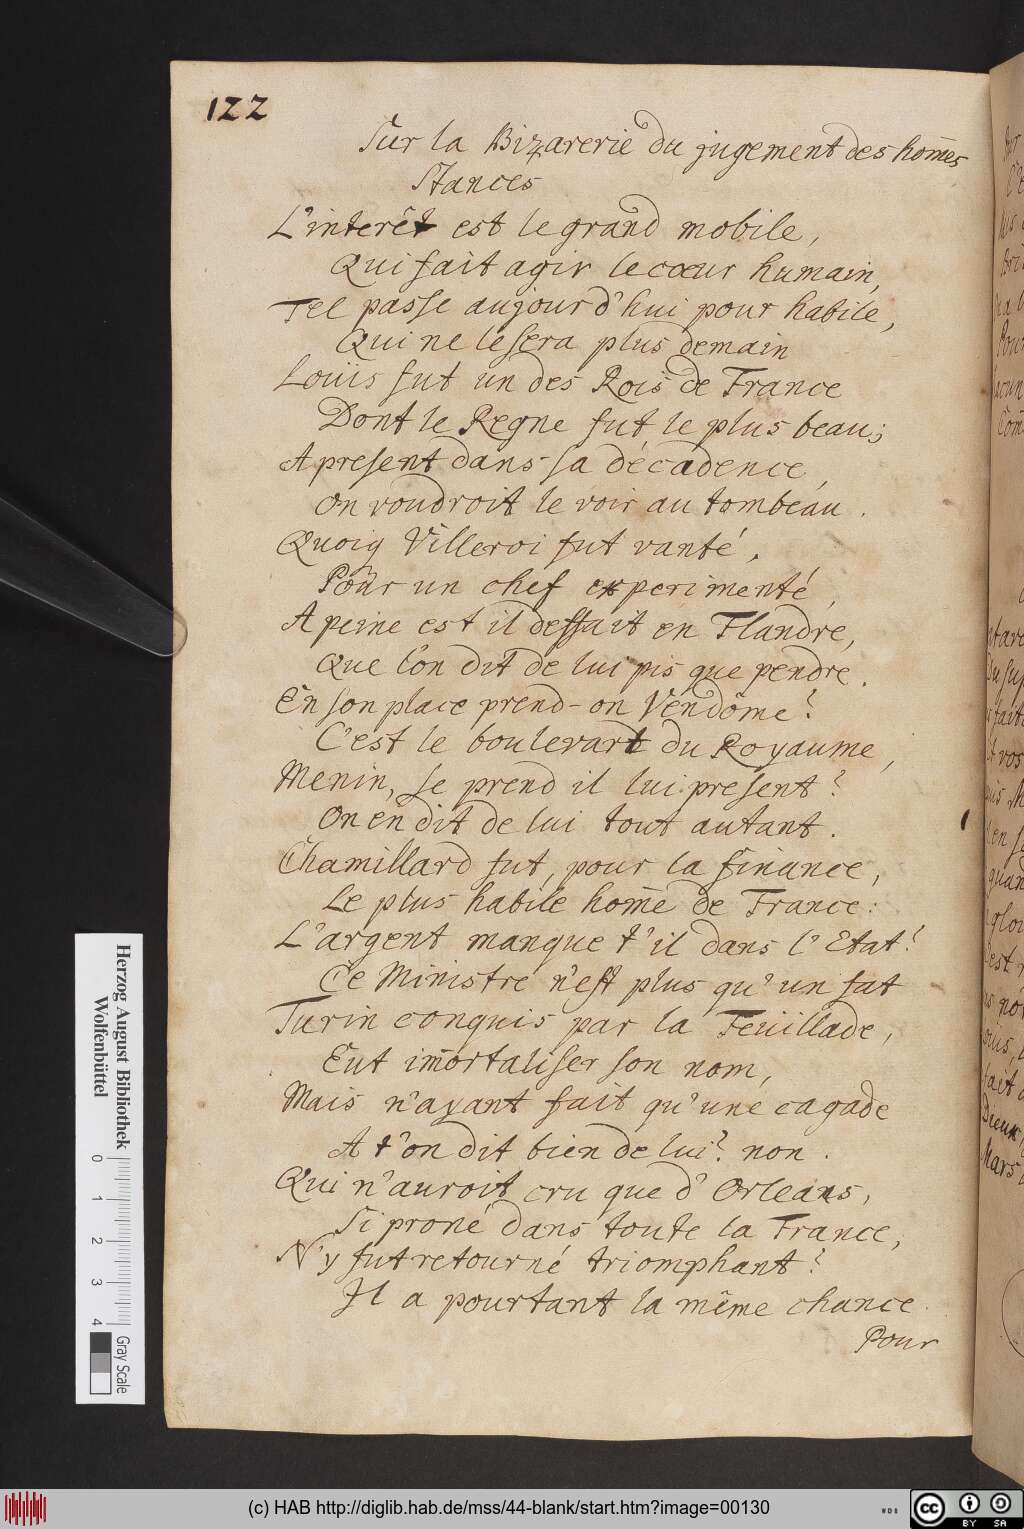 122
Sur la Bizarerie du jugement des hom̄es
Stances
L'interêt est le grand mobile,
Qui fait agir le cœur humain,
Tel passe aujourd'hui pour habile,
Qui ne le sera plus demain
Louïs fut un des Rois de France
Dont le Regne fut le plus beau;
A present dans sa décadence,
On voudroit le voir au tombeau.
Quoiq Villeroi fut vanté,
Pour un chef experimenté,
A peine est il deffait en Flandre,
Que l'on dit de lui pis que pendre.
En son place prend-on Vendôme?
C'est le boulevart du Royaume,
Menin, se prend il lui present?
On en dit de lui tout autant.
Chamillard fut, pour la finance,
Le plus habile hom̄e de France:
L'argent manque t'il dans l'Etat?
Ce Ministre n'est plus qu'un fat
Turin conquis par la Feüillade,
Eut im̄ortaliser son nom,
Mais n'ayant fait qu'une cagade
A t'on dit bien de lui? non.
Qui n'auroit cru que d'Orleans,
Si proné dans toute la France,
N'y fut retourné triomphant?
Il a pourtant la même chance.
Pour
Herzog August Bibliothek
Wolfenbüttel
0 1 2 3 4
Gray Scale
(c) HAB http://diglib.hab.de/mss/44-blank/start.htm?image=00130
WDB
cc BY SA